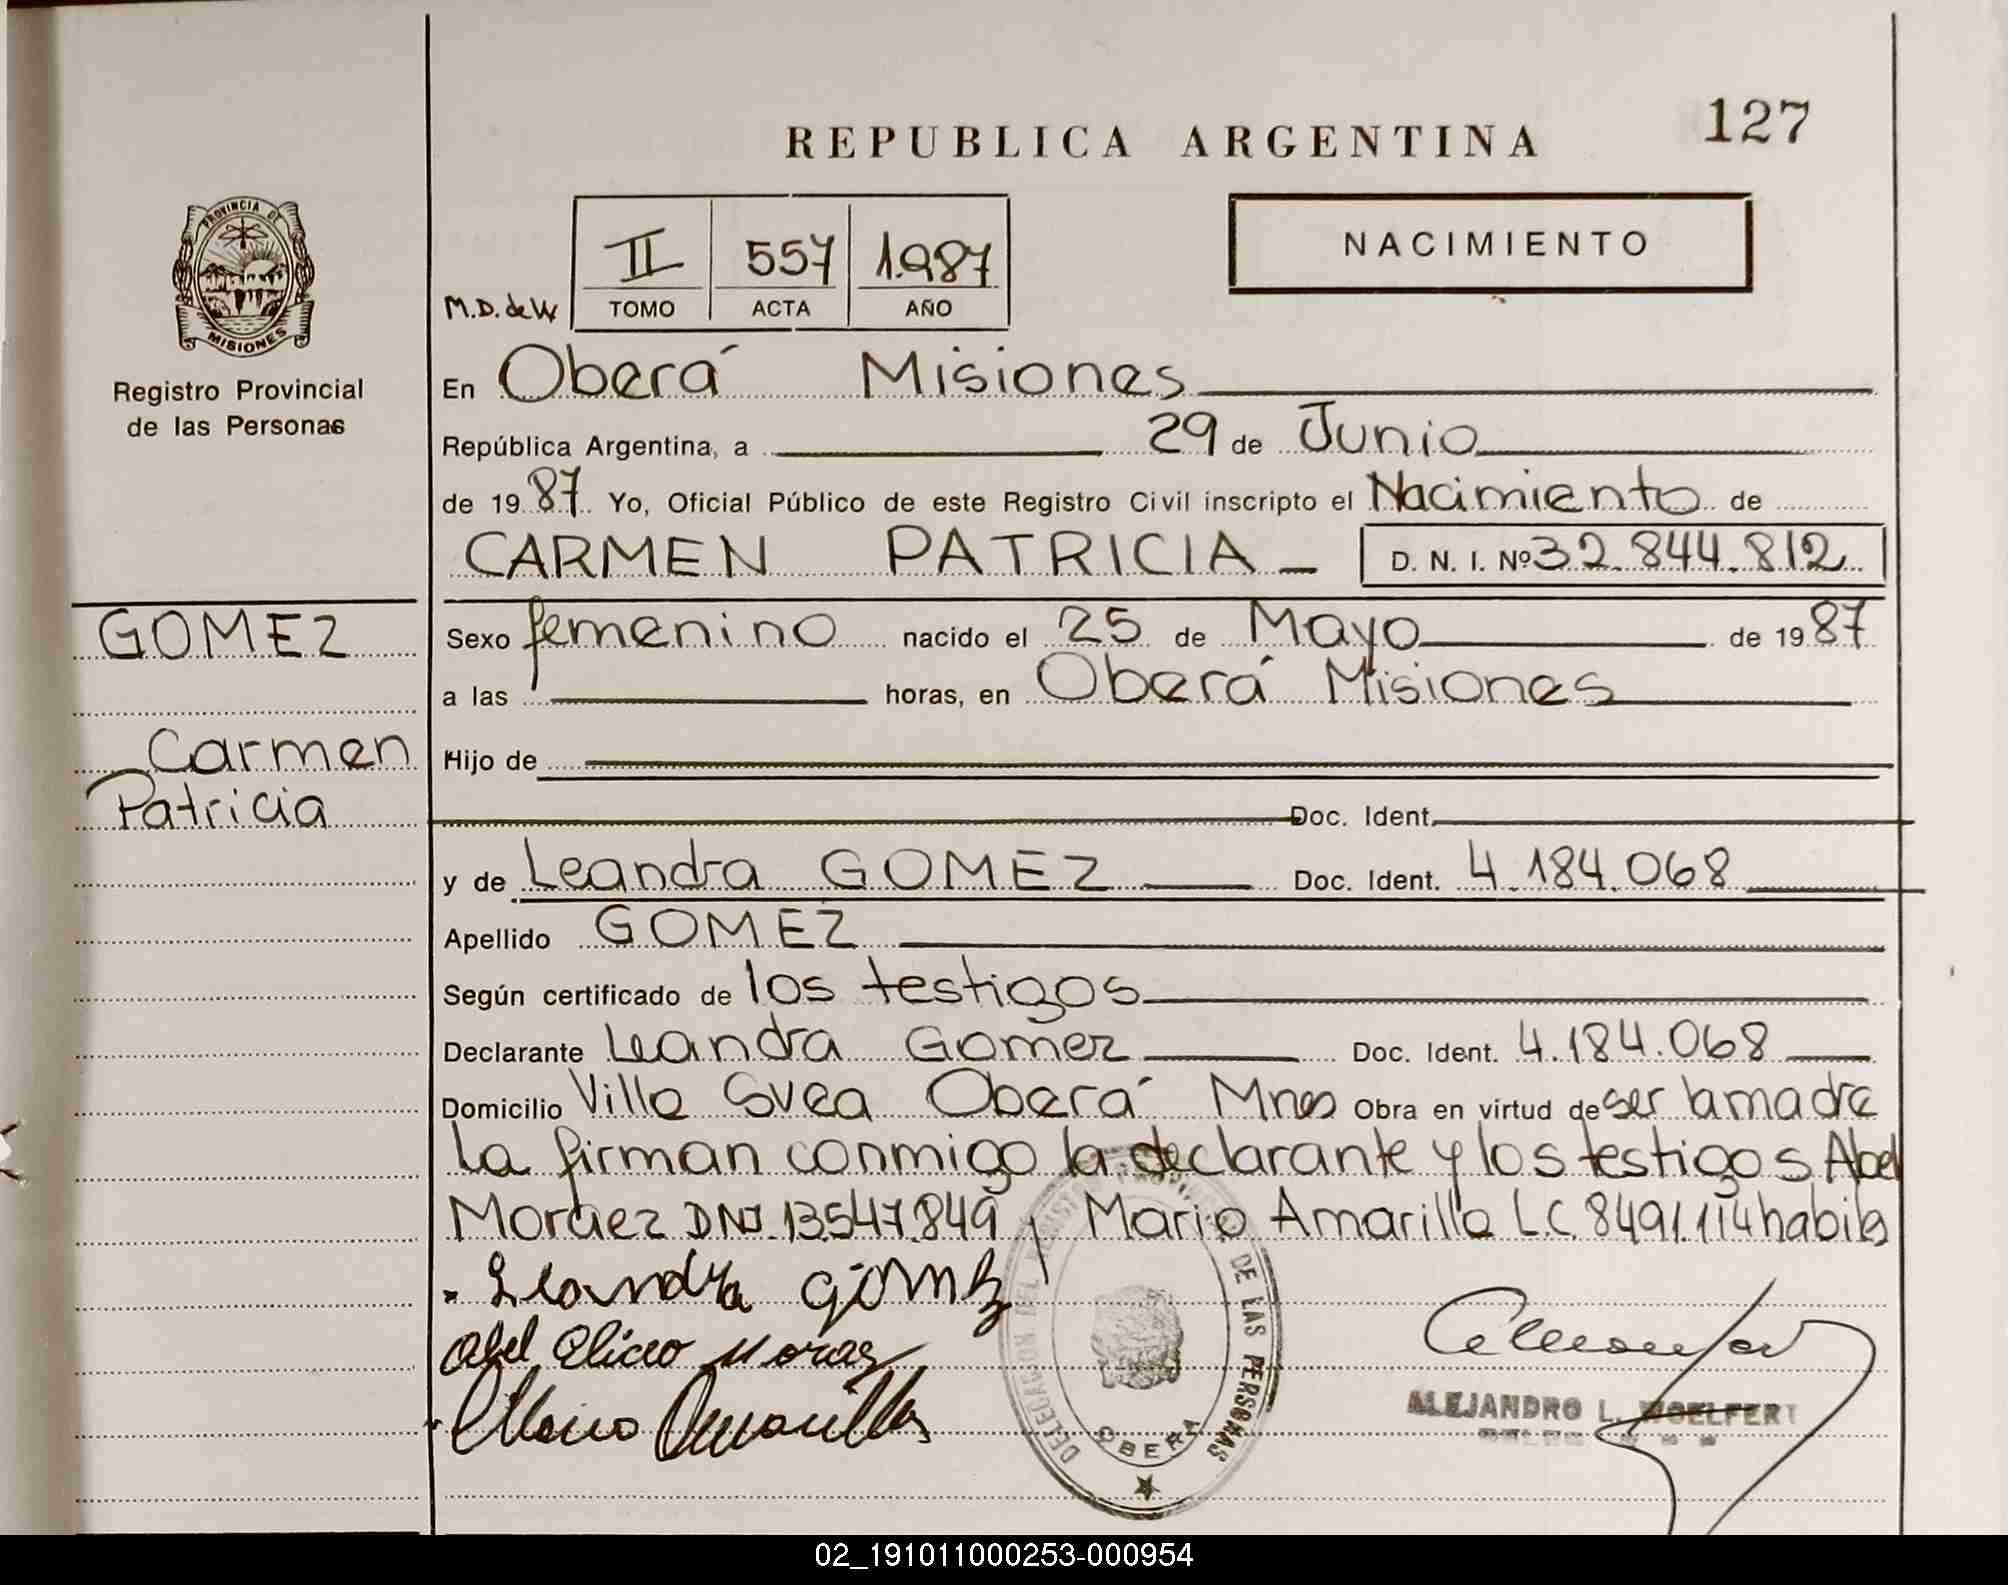 REPUBLICA ARGENTINA
127
PROVINCIA DE
MISIONES
Registro Provincial
de las Personas
II 557 1.987
M.D. de
TOMO ACTA AÑO
NACIMIENTO
En Oberá Misiones
República Argentina, a 29 de Junio
de 19 87 Yo, Oficial Público de este Registro Civil inscripto el Nacimiento de
CARMEN PATRICIA D. N. I. Nº 32.844.812
GOMEZ
Sexo femenino nacido el 25 de Mayo de 19 87
a las horas, en Oberá Misiones
Carmen
Patricia
Hijo de
Doc. Ident.
y de Leandra GOMEZ Doc. Ident. 4.184.068
Apellido GOMEZ
Según certificado de los testigos
Declarante Leandra Gomez Doc. Ident. 4.184.068
Domicilio Villa Svea Oberá Mnes Obra en virtud de ser la madre
La firman conmigo la declarante y los testigos Abel
Moraez DNI. 13547.849 y Mario Amarilla L.C. 8491.114 habiles
Leandra gomez
Abel Eliceo Moraez
Mario Amarilla
DELEGACION DEL REGISTRO PROVINCIAL DE LAS PERSONAS
OBERA
ALEJANDRO L. WOELFERT
02_191011000253-000954